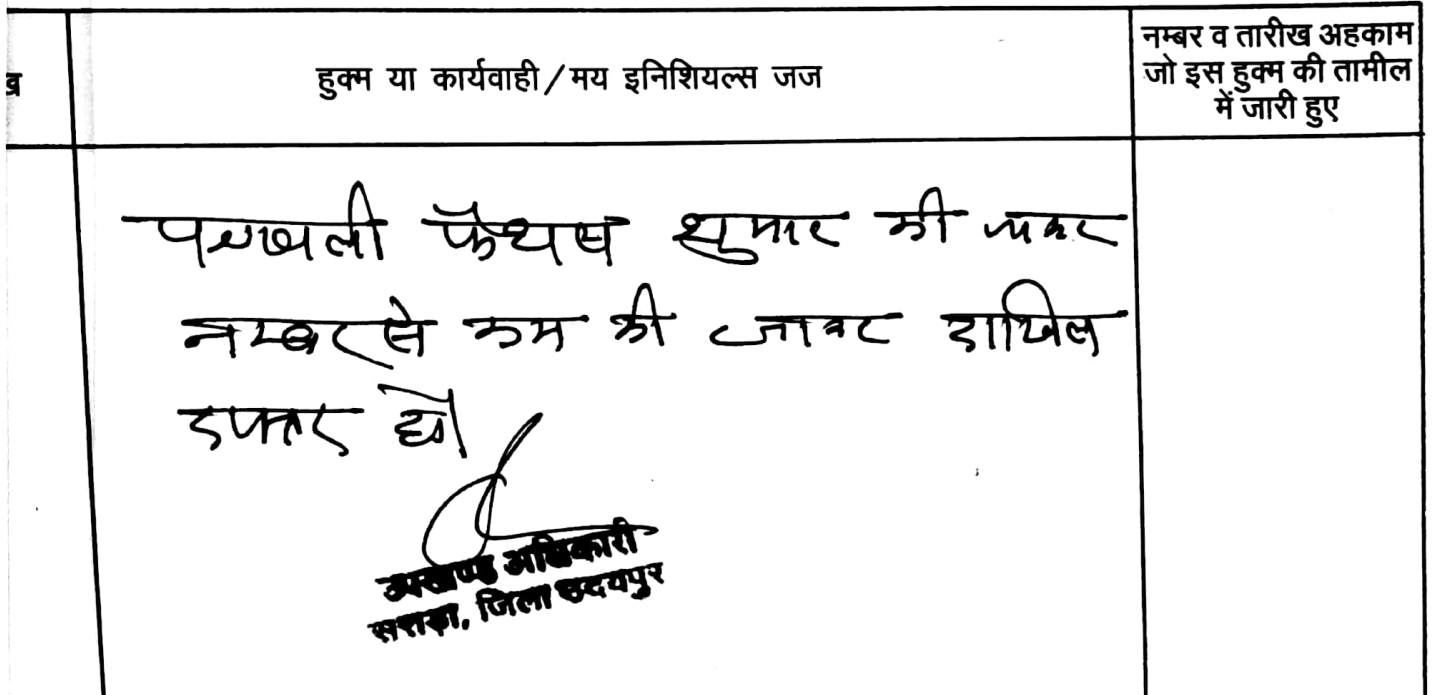 ख
हुक्म या कार्यवाही/मय इनिशियल्स जज
नम्बर व तारीख अहकाम
जो इस हुक्म की तामील
में जारी हुए
पत्रावली फैसल शुमार की जाकर
नम्बर से कम की जाकर दाखिल
दफ्तर हो
उपखण्ड अधिकारी
सराड़ा, जिला उदयपुर